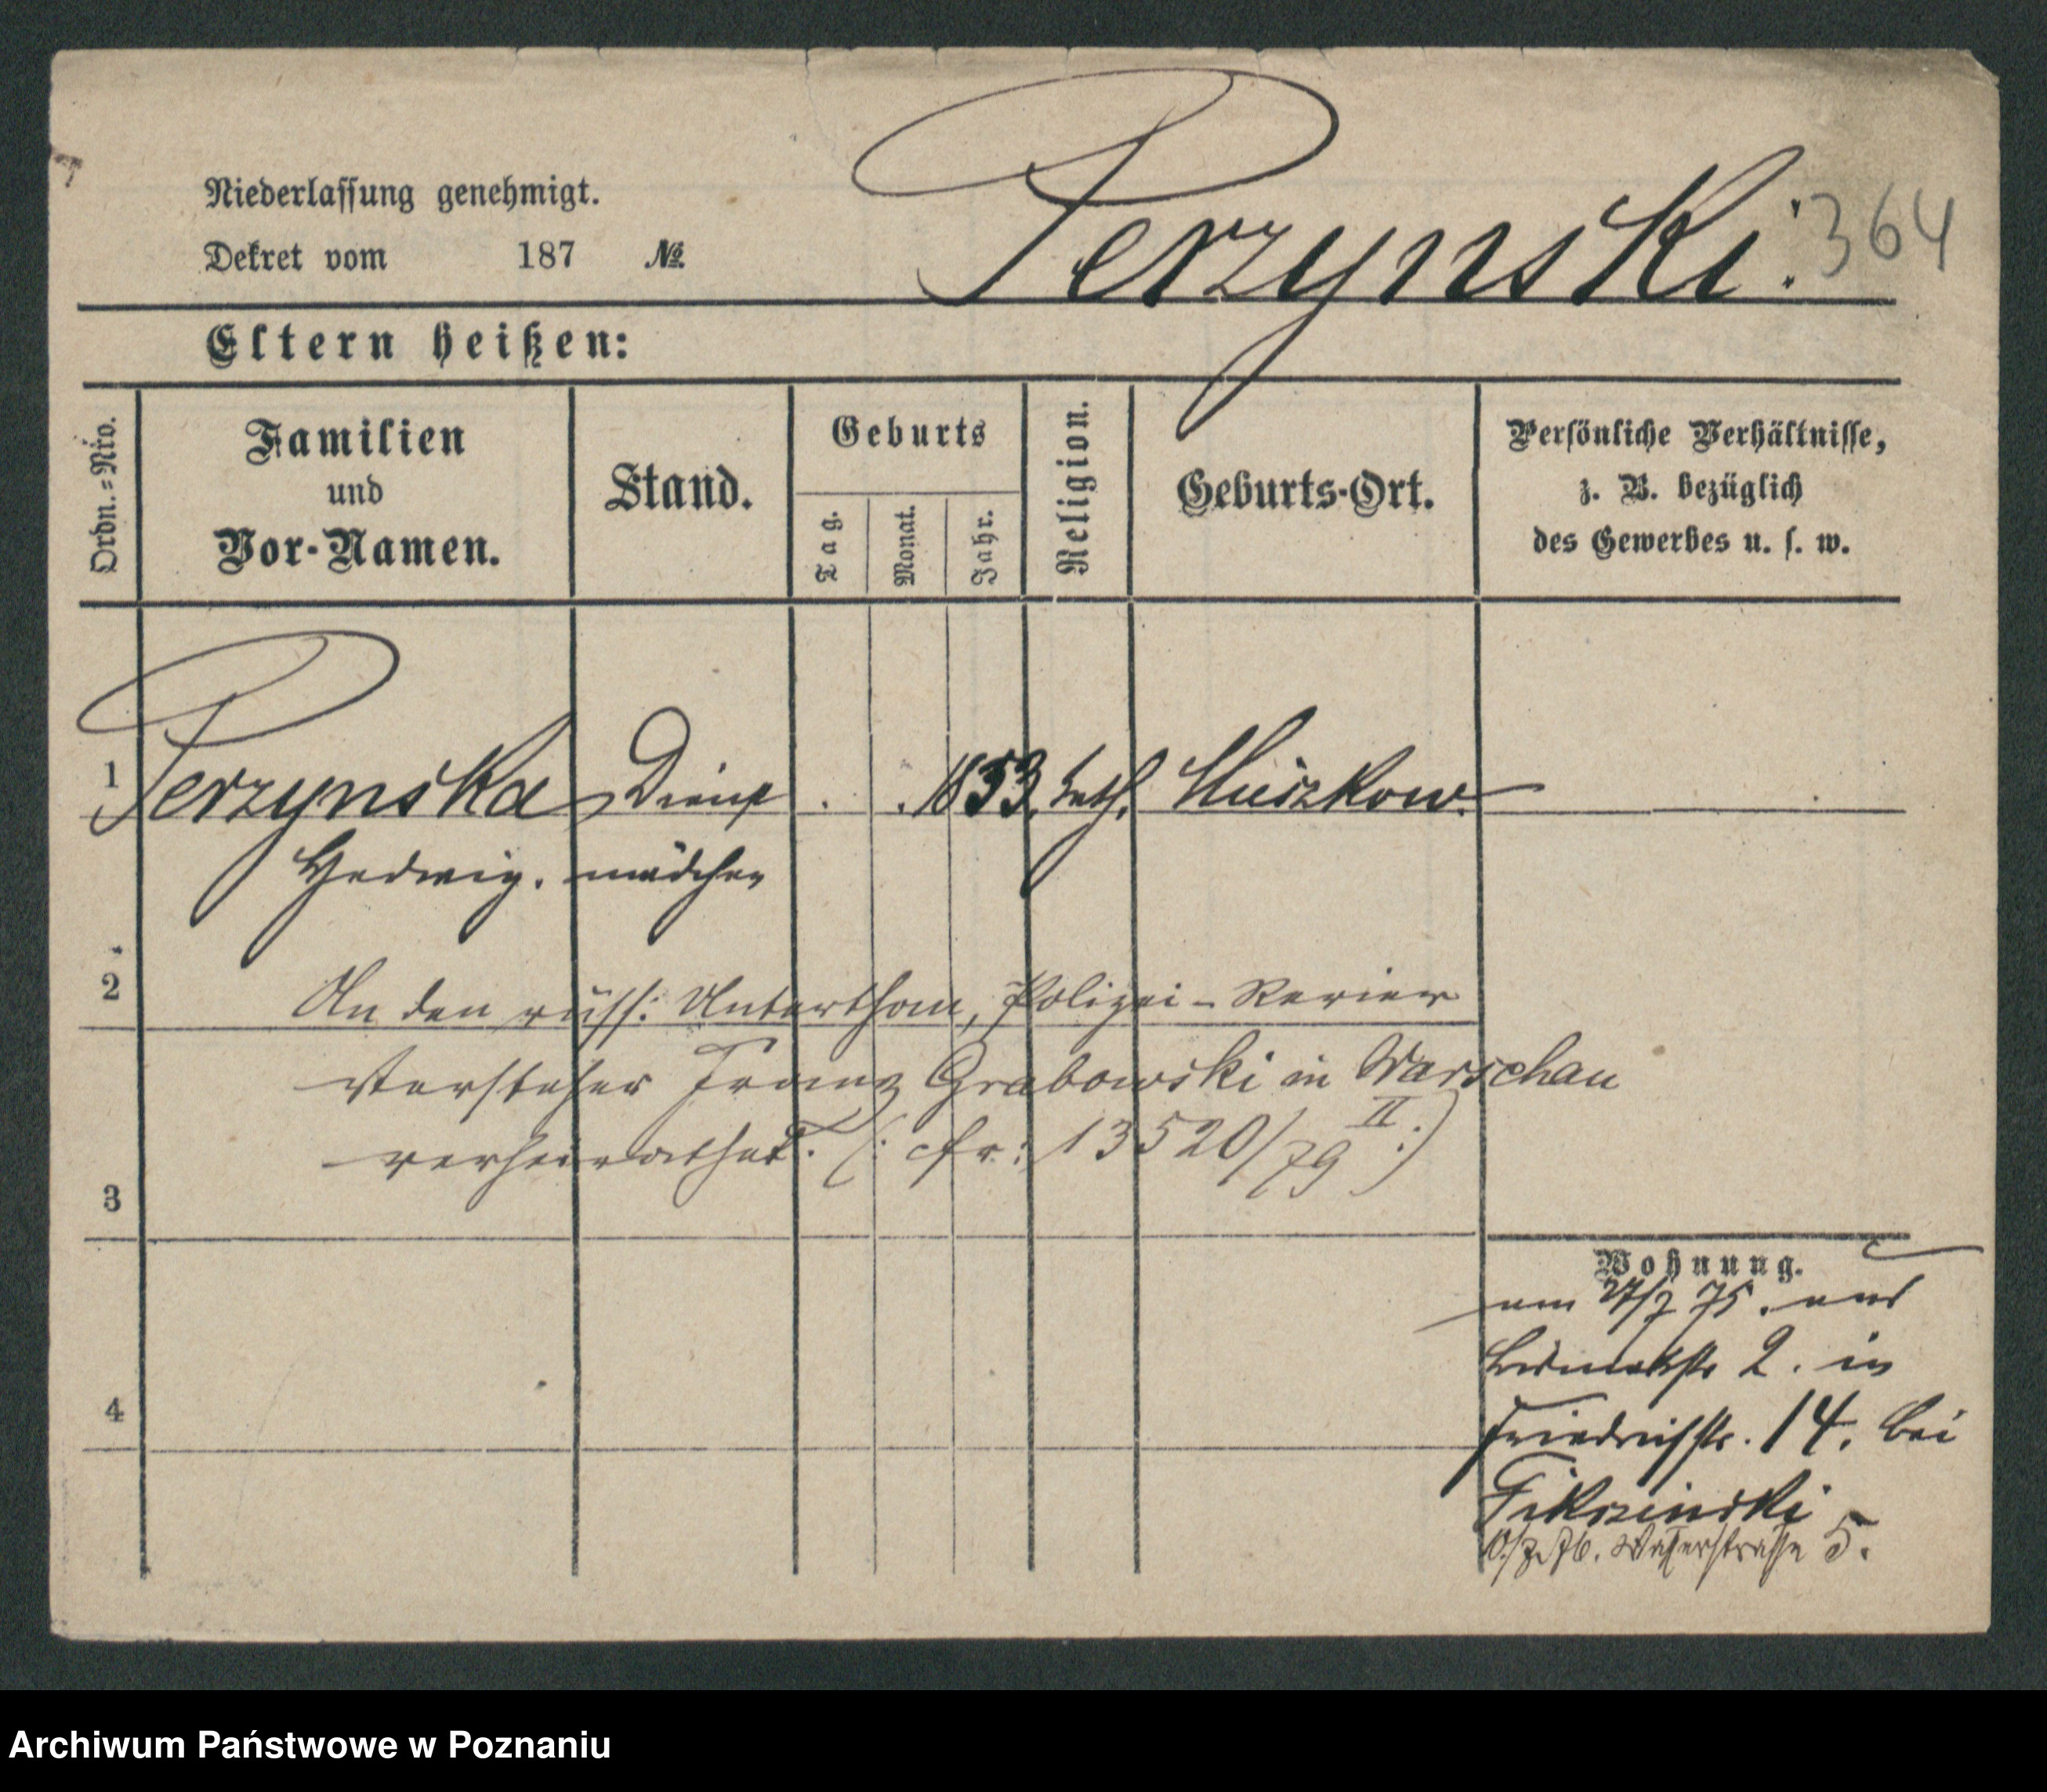 Perzynski.
364
Niederlassung genehmigt.
Dekret vom 187 №
Eltern heißen:
Ordn.=Nro.
Familien und Vor-Namen.
Stand.
Geburts
Tag.
Monat.
Jahr.
Religion.
Geburts-Ort.
Persönliche Verhältnisse,
z. B. bezüglich
des Gewerbes u. s. w.
1 Perzynska Dienst . . 1853. kath.
Hedwig. mädchen
2 An den russ: Unterthan, Polizei-Revier
Vorsteher Franz Grabowski in Warschau
verheirathet. (: cfr: 13520/79 II :)
3
Wohnung.
am 75. aus
2. in
4 Friedrichstr. 14. bei
76. Wasserstrasse 5.
Archiwum Państwowe w Poznaniu